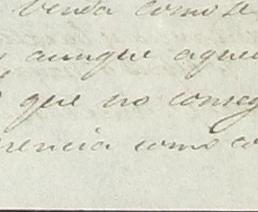 venda como se
y aunque aque
que no conseg
rencia como co